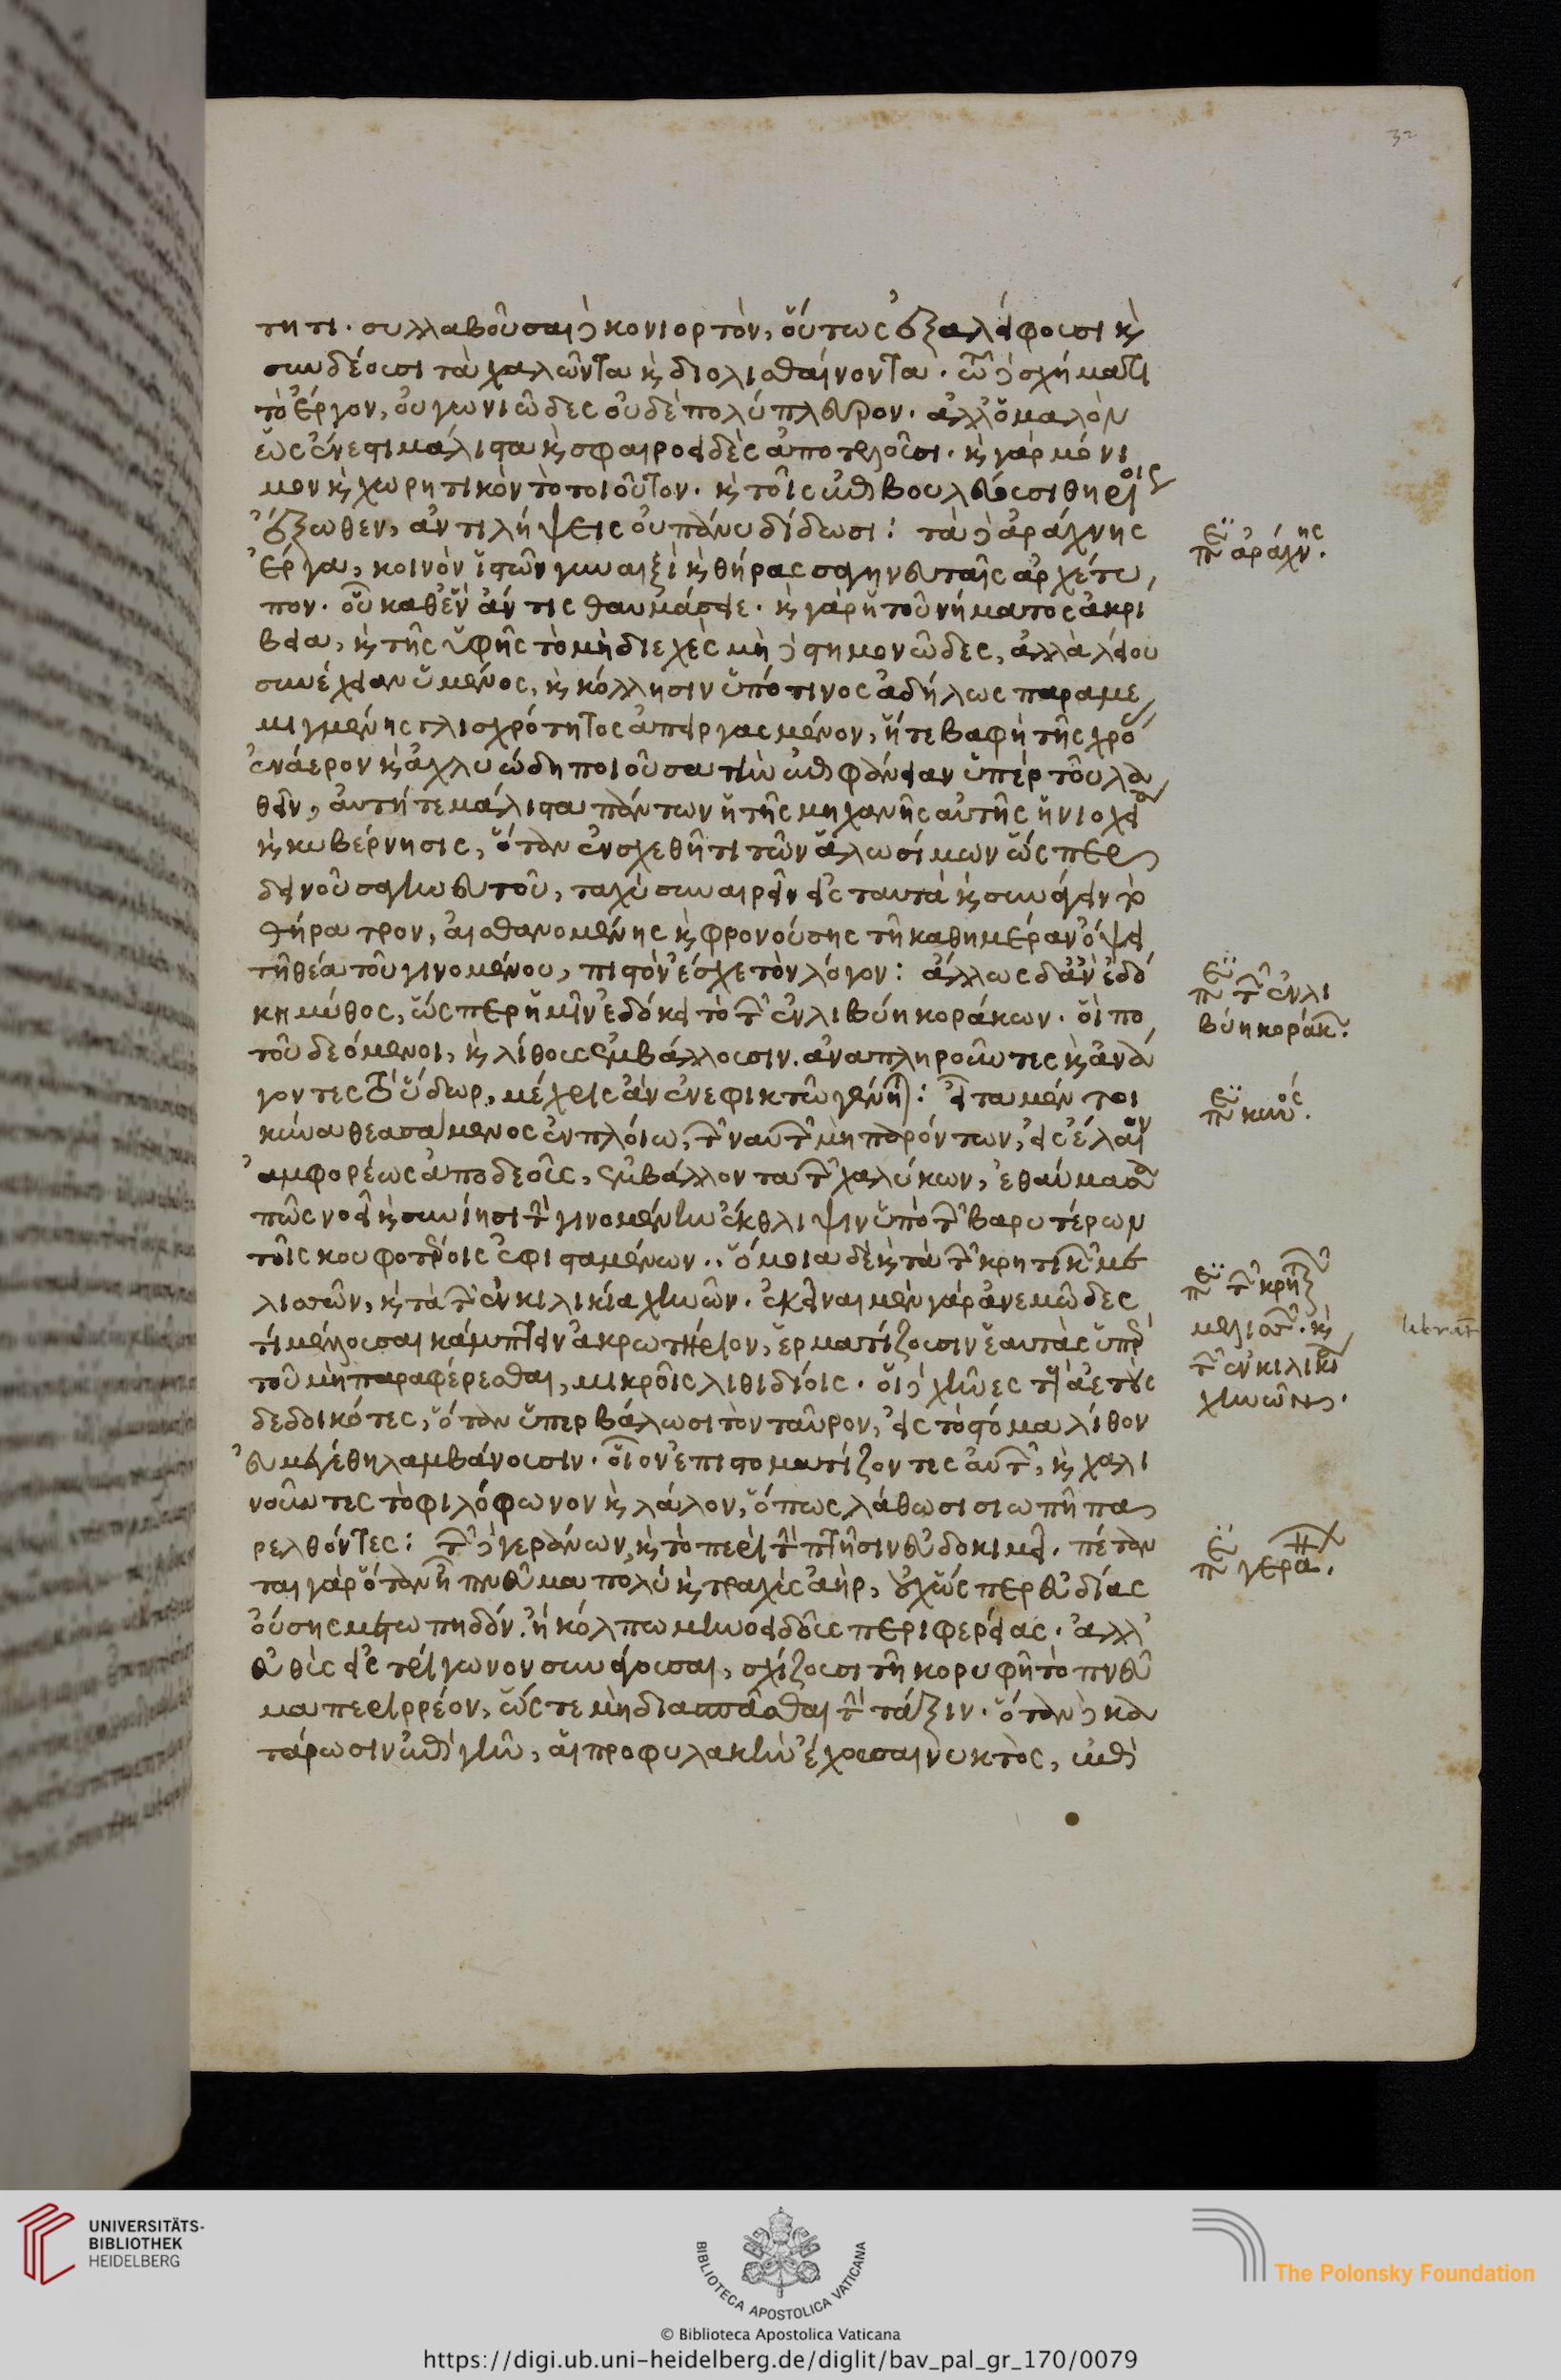 32
τητι. συλλαβοῦσαι δὲ κονιορτὸν, οὕτως ἐξαλείφουσι καὶ
συνδέουσι τὰ χαλῶντα καὶ διολισθαίνοντα. τῶ δὲ σχήματι
τὸ ἔργον, οὐ γωνιῶδες οὐδὲ πολύπλευρον. ἀλλ' ὁμαλὸν
ὡς ἔνεστι μάλιστα καὶ σφαιροειδὲς ἀποτελοῦσι. καὶ γὰρ μόνι
μον καὶ χωρητικὸν τὸ τοιοῦτον. καὶ τοῖς ἐπιβουλεύουσι θηρίοις
ἔξωθεν, ἀντιλήψεις οὐ πάνυ δίδωσι: τὰ δὲ ἀράχνης
ἔργα, κοινὸν ἱστῶν γυναιξὶ καὶ θήρας σαγηνευταῖς ἀρχέτυ
πον. οὐ καθ' ἓν ἄν τις θαυμάσειε. καὶ γὰρ ἡ τοῦ νήματος ἀκρί
βεια, καὶ τῆς ὑφῆς τὸ μὴ διεχὲς μὴ δὲ στημονῶδες, ἀλλὰ λείου
συνέχειαν ὑμένος, καὶ κόλλησιν ὑπό τινος ἀδήλως παραμε
μιγμένης γλισχρότητος ἀπειργασμένον, ἥ τε βαφὴ τῆς χρό
ἐνάερον καὶ ἀχλυώδη ποιοῦσα τὴν ἐπιφάνειαν ὑπὲρ τοῦ λα
θεῖν, αὐτή τε μάλιστα πάντων ἡ τῆς μηχανῆς αὐτῆς ἡνιοχεία
καὶ κυβέρνησις, ὅταν ἐνσχεθῆ τι τῶν ἁλωσίμων ὥσπερ
δεινοῦ σαγηνευτοῦ, ταχὺ συναιρεῖν εἰς ταυτὰ καὶ συνάγειν τὸ
θήρατρον, αἰσθανομένης καὶ φρονούσης τῆ καθημέραν ὄψει
τῆ θέα τοῦ γινομένου, πιστὸν ἔσχε τὸν λόγον: ἄλλως δ' ἂν ἐδό
κη μῦθος, ὥσπερ ἡμῖν ἐδόκει τὸ τῶν ἐν λιβύη κοράκων. οἱ πο
τοῦ δεόμενοι, καὶ λίθους ἐμβάλλουσιν. ἀναπληροῦντες καὶ ἀνά
γοντες τὸ ὕδωρ, μέχρις ἂν ἐν ἐφικτῶ γένηται: εἶτα μέν τοι
κύνα θεασάμενος ἐν πλοίω, τῶν ναυτῶν μὴ παρόντων, εἰς ἔλαιον
ἀμφορέως ἀποδεοῦς, ἐμβάλλοντα τῶν χαλίκων, ἐθαύμασα
πῶς νοεῖ καὶ συνίησι τὴν γινομένην ἔκθλιψιν ὑπὸ τῶν βαρυτέρων
τοῖς κουφοτέροις ὑφισταμένων.. ὅμοια δὲ καὶ τὰ τῶν κρητικῶν με
λισσῶν, καὶ τὰ τῶν ἐν κιλικία χηνῶν. ἐκεῖναι μὲν γὰρ ἀνεμῶδες
τι μέλλουσαι κάμπτειν ἀκρωτήριον, ἑρματίζουσιν ἑαυτὰς ὑπὲρ
τοῦ μὴ παραφέρεσθαι, μικροῖς λιθιδίοις. οἱ δὲ χῆνες τοὺς ἀετοὺς
δεδοικότες, ὅταν ὑπερβάλωσι τὸν ταῦρον, εἰς τὸ στόμα λίθον
εὐμεγέθη λαμβάνουσιν. οἷον ἐπιστοματίζοντες αὐτῶν, καὶ χαλι
νοῦντες τὸ φιλόφωνον καὶ λάλον, ὅπως λάθωσι σιωπῆ πα
ρελθόντες: τῶν δὲ γεράνων, καὶ τὸ περὶ τὴν πτῆσιν εὐδοκιμεῖ. πέτον
ται γὰρ ὅταν ἦ πνεῦμα πολὺ καὶ τραχὺς ἀὴρ, οὐχ ὥσπερ εὐδίας
οὔσης μετωπηδόν. ἢ κόλπω μηνοειδοῦς περιφερείας. ἀλλ'
εὐθὺς εἰς τρίγωνον συνάγουσαι, σχίζουσι τῆ κορυφῆ τὸ πνεῦ
μα περιρρέον, ὥστε μὴ διασπᾶσθαι τὴν τάξιν. ὅταν δὲ κα
τάρωσιν ἐπὶ γῆν, αἱ προφυλακὴν ἔχουσαι νυκτὸς, ἐπὶ
περὶ ἀράχνης.
περὶ τῶν ἐν λι
βύη κοράκων.
περὶ κυνός.
περὶ τῶν κρητικῶν
μελισσῶν. καὶ
τῶν ἐν κιλικία
χηνῶν.
περὶ γεράνων.
UNIVERSITÄTS-
BIBLIOTHEK
HEIDELBERG
BIBLIOTECA APOSTOLICA VATICANA
The Polonsky Foundation
© Biblioteca Apostolica Vaticana
https://digi.ub.uni-heidelberg.de/diglit/bav_pal_gr_170/0079